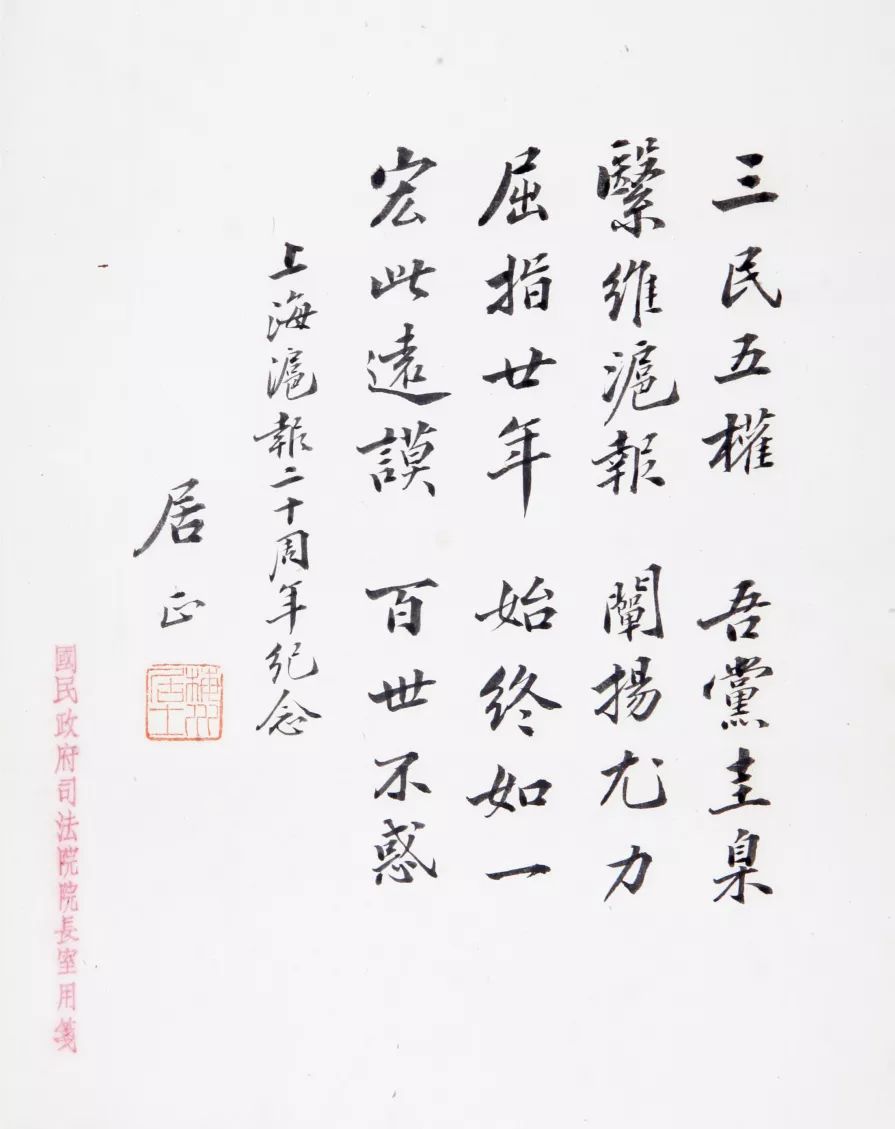 三民五權 吾黨圭臬
繄維滬報 闡揚尤力
屈指廿年 始終如一
宏此遠謨 百世不惑
上海滬報二十周年纪念
居正
梅川居士
國民政府司法院院長室用箋